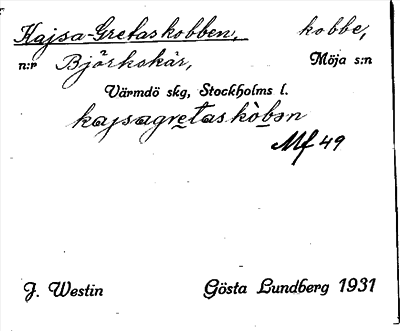 Kajsa-Gretaskobben, kobbe,
n:r Björkskär, Möja s:n
Värmdö skg, Stockholms l.
kajsagretaskòbən
Mf 49
J. Westin Gösta Lundberg 1931